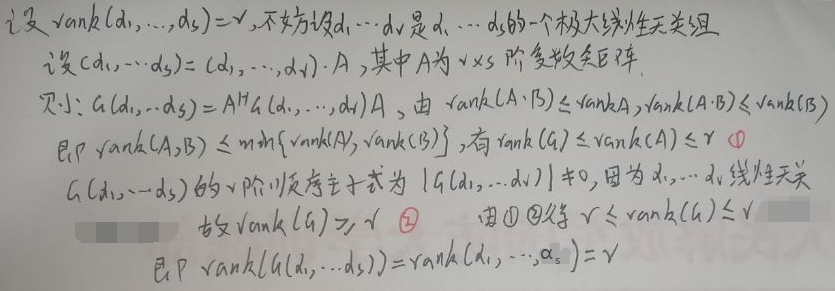 设 rank(α₁,…,αₛ)=r,不妨设α₁…αᵣ是α₁…αₛ的一个极大线性无关组
设(α₁,…αₛ)=(α₁,…,αᵣ)·A,其中A为r×s阶复数矩阵.
则:G(α₁,…αₛ)=AᴴG(α₁,…,αᵣ)A,由 rank(A·B)≤rankA,rank(A·B)≤rank(B)
即 rank(A,B)≤min{rank(A),rank(B)},有rank(G)≤rank(A)≤r ①
G(α₁,…αₛ)的r阶顺序主子式为|G(α₁,…αᵣ)|≠0,因为α₁,…αᵣ线性无关
故rank(G)≥r ② 由①②得 r≤rank(G)≤r
即 rank(G(α₁,…αₛ))=rank(α₁,…,αₛ)=r